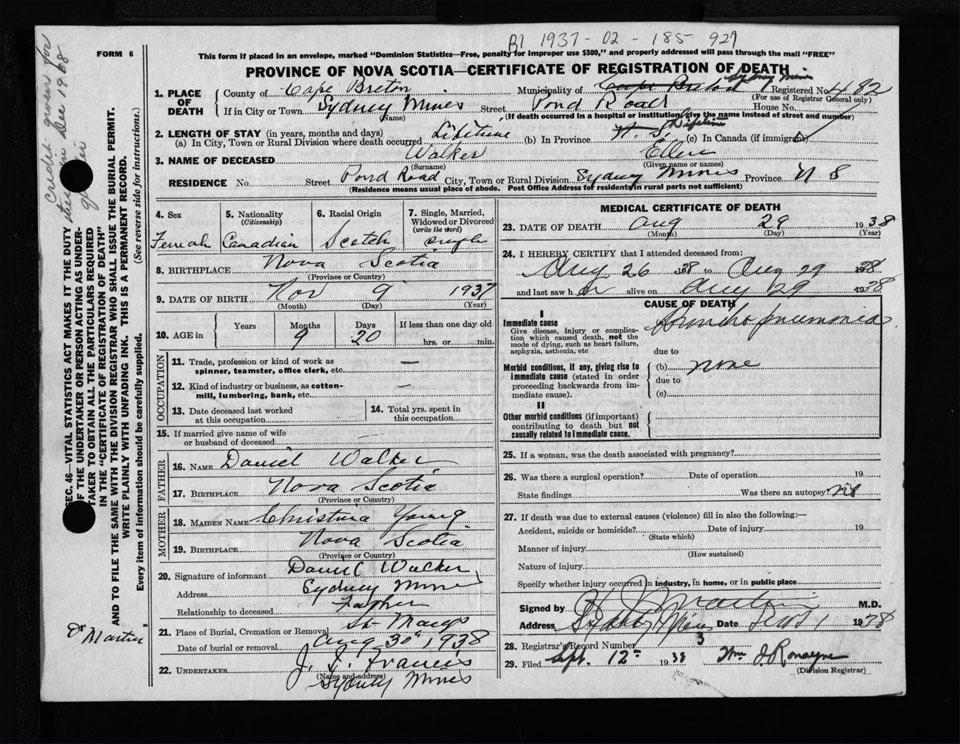 B1 1937-02-185-927
FORM 6
This form if placed in an envelope, marked "Dominion Statistics—Free, penalty for improper use $300," and properly addressed will pass through the mail "FREE"
PROVINCE OF NOVA SCOTIA—CERTIFICATE OF REGISTRATION OF DEATH
1. PLACE OF DEATH
County of Cape Breton Municipality of Cape Breton Sydney Mines Registered No. 482
(For use of Registrar General only)
If in City or Town Sydney Mines Street Pond Road House No.
(Name) (If death occurred in a hospital or institution, give the name instead of street and number)
2. LENGTH OF STAY (in years, months and days)
(a) In City, Town or Rural Division where death occurred Lifetime (b) In Province N. S. Lifetime (c) In Canada (if immigrant)
3. NAME OF DECEASED Walker Ellen
(Surname) (Given name or names)
RESIDENCE No. Street Pond Road City, Town or Rural Division Sydney Mines Province N S
(Residence means usual place of abode. Post Office Address for residents in rural parts not sufficient)
4. Sex Female
5. Nationality (Citizenship) Canadian
6. Racial Origin Scotch
7. Single, Married, Widowed or Divorced (write the word) single
8. BIRTHPLACE Nova Scotia
(Province or Country)
9. DATE OF BIRTH Nov 9 1937
(Month) (Day) (Year)
10. AGE in Years Months Days If less than one day old
9 20 hrs. or min.
OCCUPATION
11. Trade, profession or kind of work as spinner, teamster, office clerk, etc. —
12. Kind of industry or business, as cotton-mill, lumbering, bank, etc. —
13. Date deceased last worked at this occupation
14. Total yrs. spent in this occupation
15. If married give name of wife or husband of deceased
FATHER
16. NAME Daniel Walker
17. BIRTHPLACE Nova Scotia
(Province or Country)
MOTHER
18. MAIDEN NAME Christina Young
19. BIRTHPLACE Nova Scotia
(Province or Country)
20. Signature of informant Daniel Walker
Address Sydney Mines
Relationship to deceased Father
21. Place of Burial, Cremation or Removal St Marys
Date of burial or removal Aug 30 1938
22. UNDERTAKER J. J. Francis
(Name and address)
Sydney Mines
MEDICAL CERTIFICATE OF DEATH
23. DATE OF DEATH Aug 29 1938
(Month) (Day) (Year)
24. I HEREBY CERTIFY that I attended deceased from:
Aug 26 1938 to Aug 29 1938
and last saw her alive on Aug 29 1938
CAUSE OF DEATH
I
Immediate cause
Give disease, injury or complication which caused death, not the mode of dying, such as heart failure, asphyxia, asthenia, etc
Broncho pneumonia
due to
Morbid conditions, if any, giving rise to immediate cause (stated in order proceeding backwards from immediate cause).
(b) none
due to
(c)
II
Other morbid conditions (if important) contributing to death but not causally related to immediate cause.
25. If a woman, was the death associated with pregnancy?
26. Was there a surgical operation? Date of operation 19
State findings Was there an autopsy?
27. If death was due to external causes (violence) fill in also the following:—
Accident, suicide or homicide? Date of injury 19
(State which)
Manner of injury
(How sustained)
Nature of injury
Specify whether injury occurred in industry, in home, or in public place
Signed by M.D.
Address Sydney Mines Date Sept 1 1938
28. Registrar's Record Number 3
29. Filed Sept. 12th 1938 Wm J Ronayne
(Division Registrar)
SEC. 46—VITAL STATISTICS ACT MAKES IT THE DUTY OF THE UNDERTAKER OR PERSON ACTING AS UNDERTAKER TO OBTAIN ALL THE PARTICULARS REQUIRED IN THE "CERTIFICATE OF REGISTRATION OF DEATH" AND TO FILE THE SAME WITH THE DIVISION REGISTRAR WHO SHALL ISSUE THE BURIAL PERMIT.
WRITE PLAINLY WITH UNFADING INK. THIS IS A PERMANENT RECORD.
Every item of information should be carefully supplied. (See reverse side for instructions.)
Credit given for
Dec 1938
Dr Martin